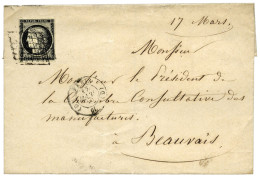 17 Mars.
Monsieur
Monsieur le Président de
la Chambre Consultative des
manufactures.
à
Beauvais